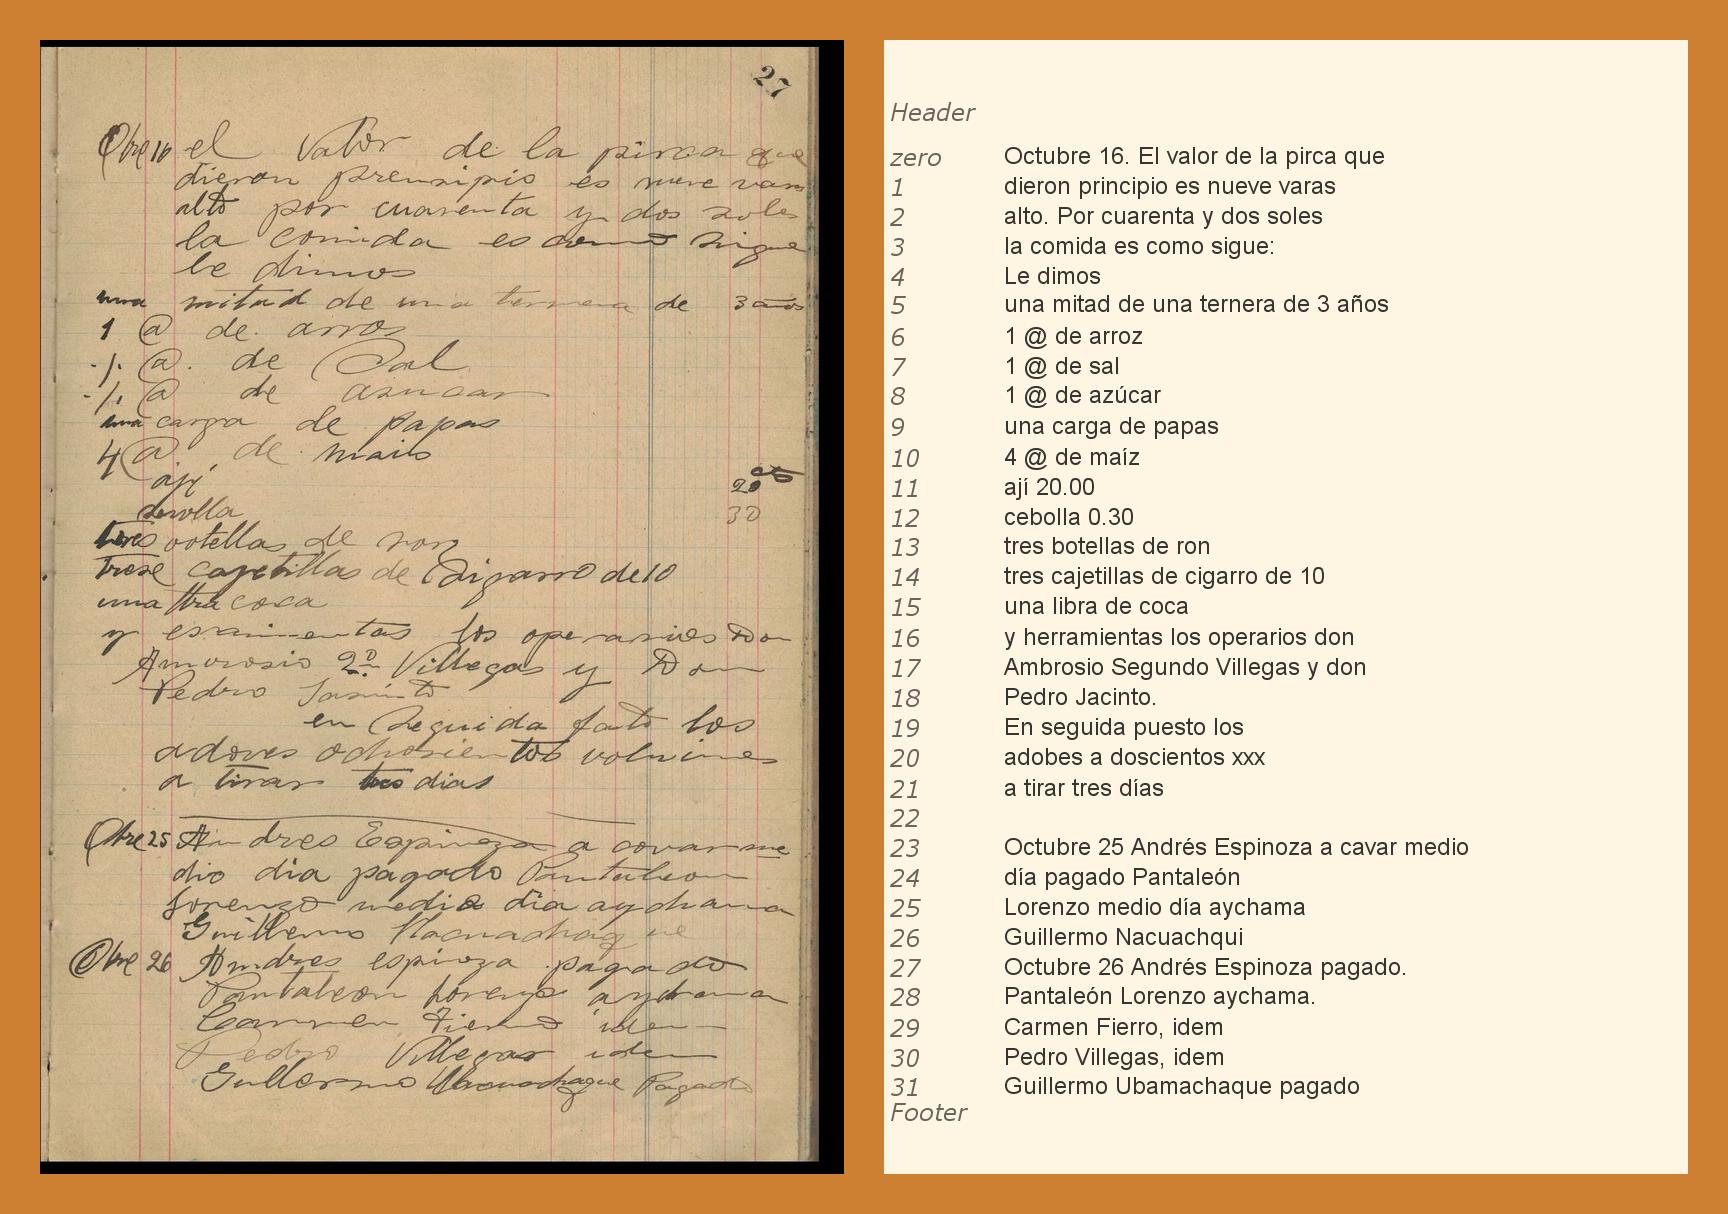 27
Obre 16 el valor de la pirca que
dieron prensipio es nueve varas
alto por cuarenta y dos soles
la comida es como sigue
le dimos
una mitad de una ternera de 3 años
1 @ de arros
-/. @. de Sal
-/. @ de asucar
una carga de papas
4 @ de mais
ají 20 cts
sevolla 30
tres votellas de ron
trese cajetillas de Sigarro de 10
una lbra coca
y los operarios Don
Amorosio 2º Villegas y Don
Pedro Jasinto
en seguida los
adoves ochosientos
a tirar tres dias
Obre 25 Andres Espinoza a covar me
dio dia pagado Pantaleon
Lorenzo medio dia aychama
Guillermo
Obre 26 Andres espinoza pagado
Pantaleon Lorenzo aychama
Carmen Fierro iden
Pedro Villegas iden
Guillermo Pagado
Header
zero Octubre 16. El valor de la pirca que
1 dieron principio es nueve varas
2 alto. Por cuarenta y dos soles
3 la comida es como sigue:
4 Le dimos
5 una mitad de una ternera de 3 años
6 1 @ de arroz
7 1 @ de sal
8 1 @ de azúcar
9 una carga de papas
10 4 @ de maíz
11 ají 20.00
12 cebolla 0.30
13 tres botellas de ron
14 tres cajetillas de cigarro de 10
15 una libra de coca
16 y herramientas los operarios don
17 Ambrosio Segundo Villegas y don
18 Pedro Jacinto.
19 En seguida puesto los
20 adobes a doscientos xxx
21 a tirar tres días
22
23 Octubre 25 Andrés Espinoza a cavar medio
24 día pagado Pantaleón
25 Lorenzo medio día aychama
26 Guillermo Nacuachqui
27 Octubre 26 Andrés Espinoza pagado.
28 Pantaleón Lorenzo aychama.
29 Carmen Fierro, idem
30 Pedro Villegas, idem
31 Guillermo Ubamachaque pagado
Footer